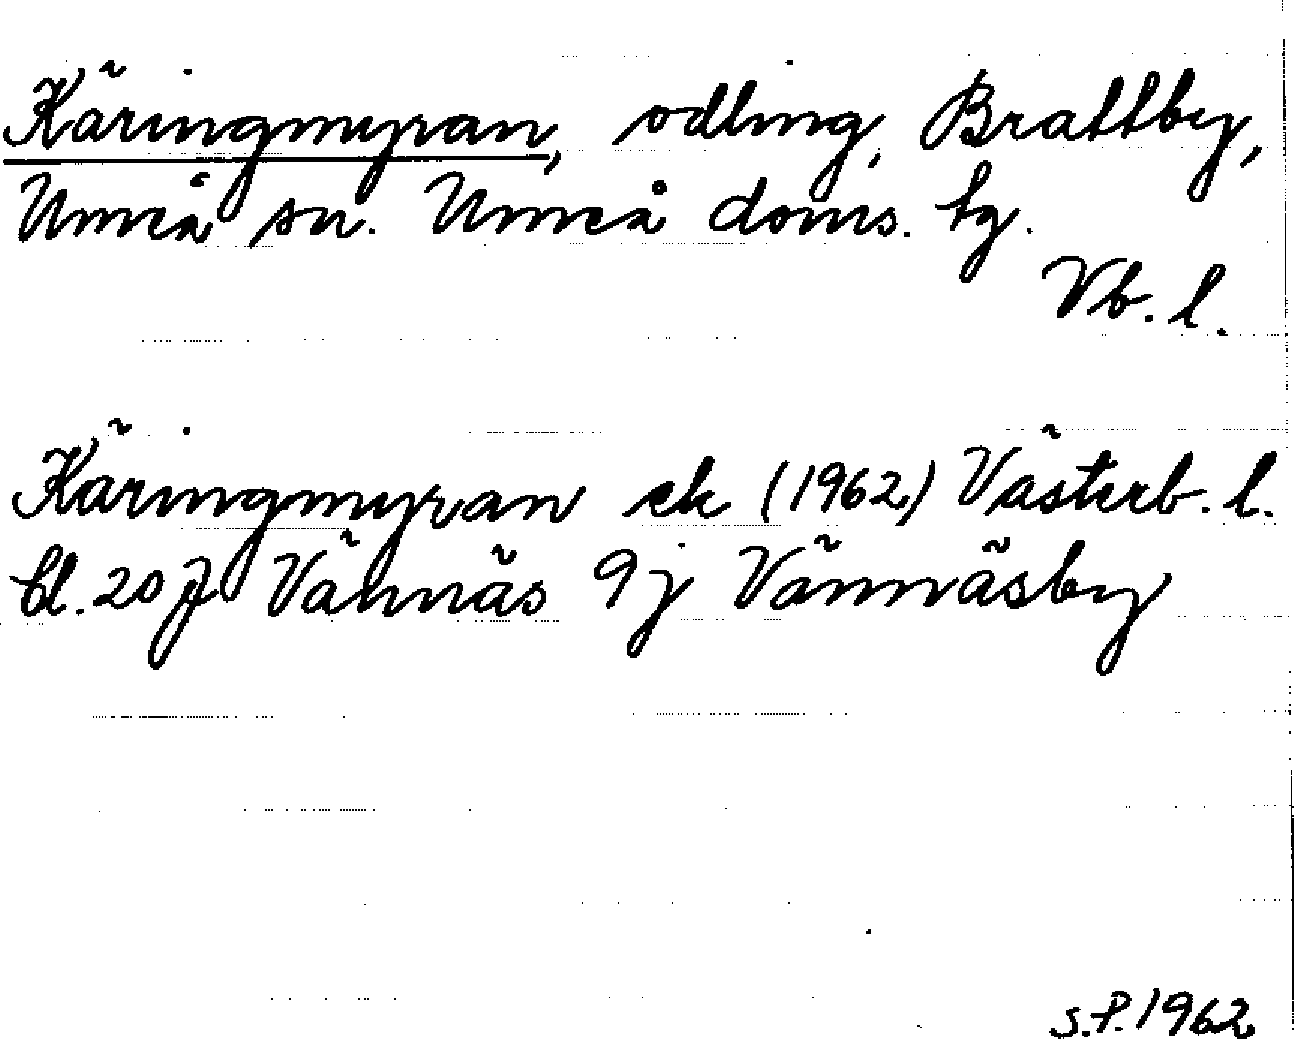 Käringmyran, odling, Brattby,
Umeå sn. Umeå doms. tg.
Vb. l.
Käringmyran ek (1962) Västerb. l.
bl. 20 J Vännäs 9j Vännäsby
S.P. 1962